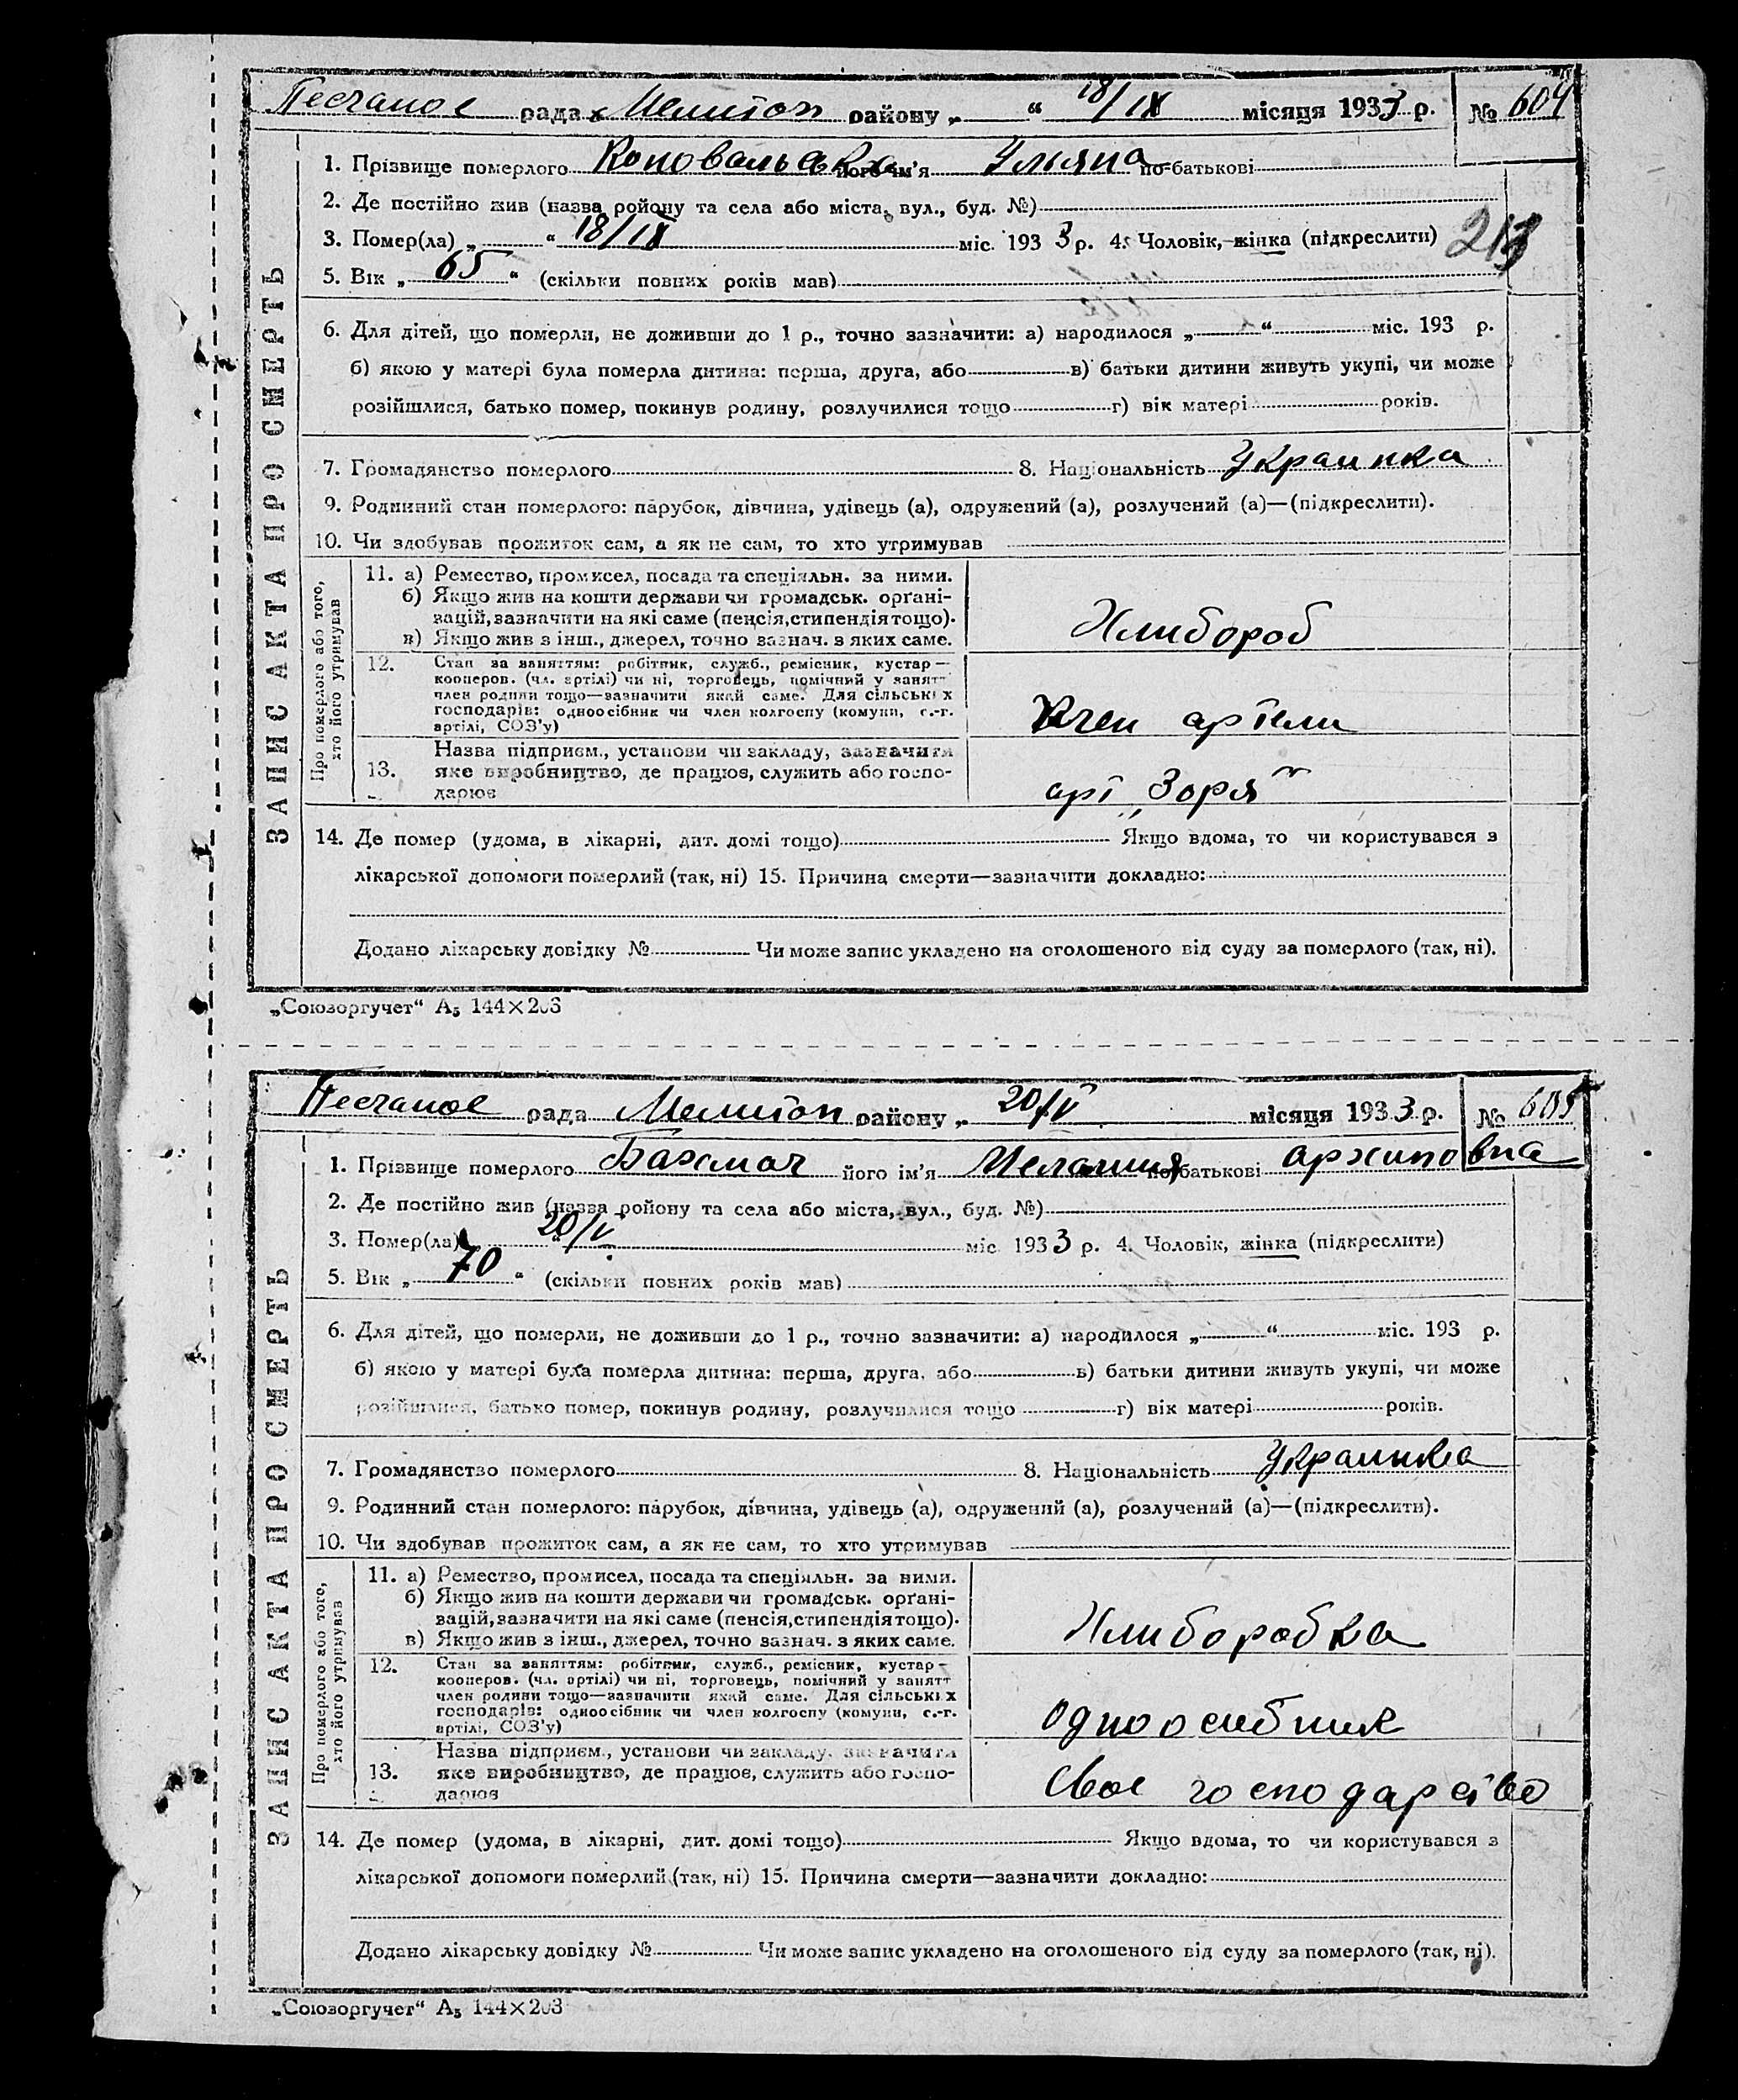 Песчаное рада Мелитоп району „ “ 18/IX місяця 1933 р. № 604
1. Прізвище померлого його ім'я Ульяна по-батькові
2. Де постійно жив (назва ройону та села або міста, вул., буд. №)
3. Помер(ла) „ “ 18/IX міс. 193 3 р. 4. Чоловік, жінка (підкреслити) 213
5. Вік „ 65 “ (скільки повних років мав)
6. Для дітей, що померли, не доживши до 1 р., точно зазначити: а) народилося „ “ міс. 193 р.
б) якою у матері була померла дитина: перша, друга, або в) батьки дитини живуть укупі, чи може
розійшлися, батько помер, покинув родину, розлучилися тощо г) вік матері років.
7. Громадянство померлого 8. Національність Украинка
9. Родинний стан померлого: парубок, дівчина, удівець (а), одружений (а), розлучений (а)—(підкреслити).
10. Чи здобував прожиток сам, а як не сам, то хто утримував
ЗАПИС АКТА ПРО СМЕРТЬ
Про померлого або того, хто його утримував
11. а) Ремество, промисел, посада та спеціяльн. за ними.
б) Якщо жив на кошти держави чи громадськ. органі-
зацій, зазначити на які саме (пенсія, стипендія тощо).
в) Якщо жив з інш., джерел, точно зазнач. з яких саме.
Хлибороб
12. Стан за заняттям: робітник, служб., ремісник, кустар—
кооперов. (чл. артілі) чи ні, торговець, помічний у занятт
член родини тощо—зазначити який саме. Для сільських
господарів: одноосібник чи член колгоспу (комуни, с.-г.
артілі, СОЗ'у)
Член артели
Назва підприєм., установи чи закладу, зазначити
13. яке виробництво, де працює, служить або госпо-
дарює
арт „Зоря“
14. Де помер (удома, в лікарні, дит. домі тощо) Якщо вдома, то чи користувався з
лікарської допомоги померлий (так, ні) 15. Причина смерти—зазначити докладно:
Додано лікарську довідку № Чи може запис укладено на оголошеного від суду за померлого (так, ні).
„Союзоргучет“ А5 144×203
Песчаное рада Мелитоп району „ 20/V місяця 1933 р. № 605
1. Прізвище померлого його ім'я Мелания по-батькові Архиповна
2. Де постійно жив (назва ройону та села або міста, вул., буд. №)
3. Помер(ла) 20/V міс. 193 3 р. 4. Чоловік, жінка (підкреслити)
5. Вік „ 70 “ (скільки повних років мав)
6. Для дітей, що померли, не доживши до 1 р., точно зазначити: а) народилося „ “ міс. 193 р.
б) якою у матері була померла дитина: перша, друга, або в) батьки дитини живуть укупі, чи може
розійшлися, батько помер, покинув родину, розлучилися тощо г) вік матері років.
7. Громадянство померлого 8. Національність Украинка
9. Родинний стан померлого: парубок, дівчина, удівець (а), одружений (а), розлучений (а)—(підкреслити).
10. Чи здобував прожиток сам, а як не сам, то хто утримував
ЗАПИС АКТА ПРО СМЕРТЬ
Про померлого або того, хто його утримував
11. а) Ремество, промисел, посада та спеціяльн. за ними.
б) Якщо жив на кошти держави чи громадськ. органі-
зацій, зазначити на які саме (пенсія, стипендія тощо).
в) Якщо жив з інш., джерел, точно зазнач. з яких саме.
Хлиборобка
12. Стан за заняттям: робітник, служб., ремісник, кустар—
кооперов. (чл. артілі) чи ні, торговець, помічний у занятт
член родини тощо—зазначити який саме. Для сільських
господарів: одноосібник чи член колгоспу (комуни, с.-г.
артілі, СОЗ'у)
Одноосибник
Назва підприєм., установи чи закладу, зазначити
13. яке виробництво, де працює, служить або госпо-
дарює
Свое господарство
14. Де помер (удома, в лікарні, дит. домі тощо) Якщо вдома, то чи користувався з
лікарської допомоги померлий (так, ні) 15. Причина смерти—зазначити докладно:
Додано лікарську довідку № Чи може запис укладено на оголошеного від суду за померлого (так, ні).
„Союзоргучет“ А5 144×203